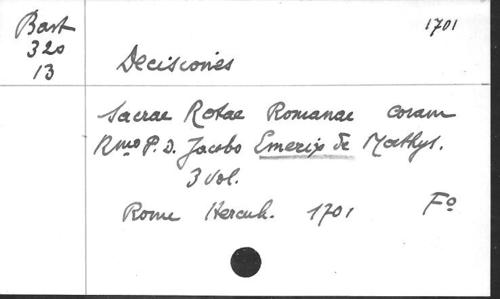 Bast 1701
320
13
Decisiones
Sacrae Rotae Romanae coram
Rmo P. D. Jacobo Emerix de Mathys.
3 Vol.
Rome Hercul. 1701 Fo